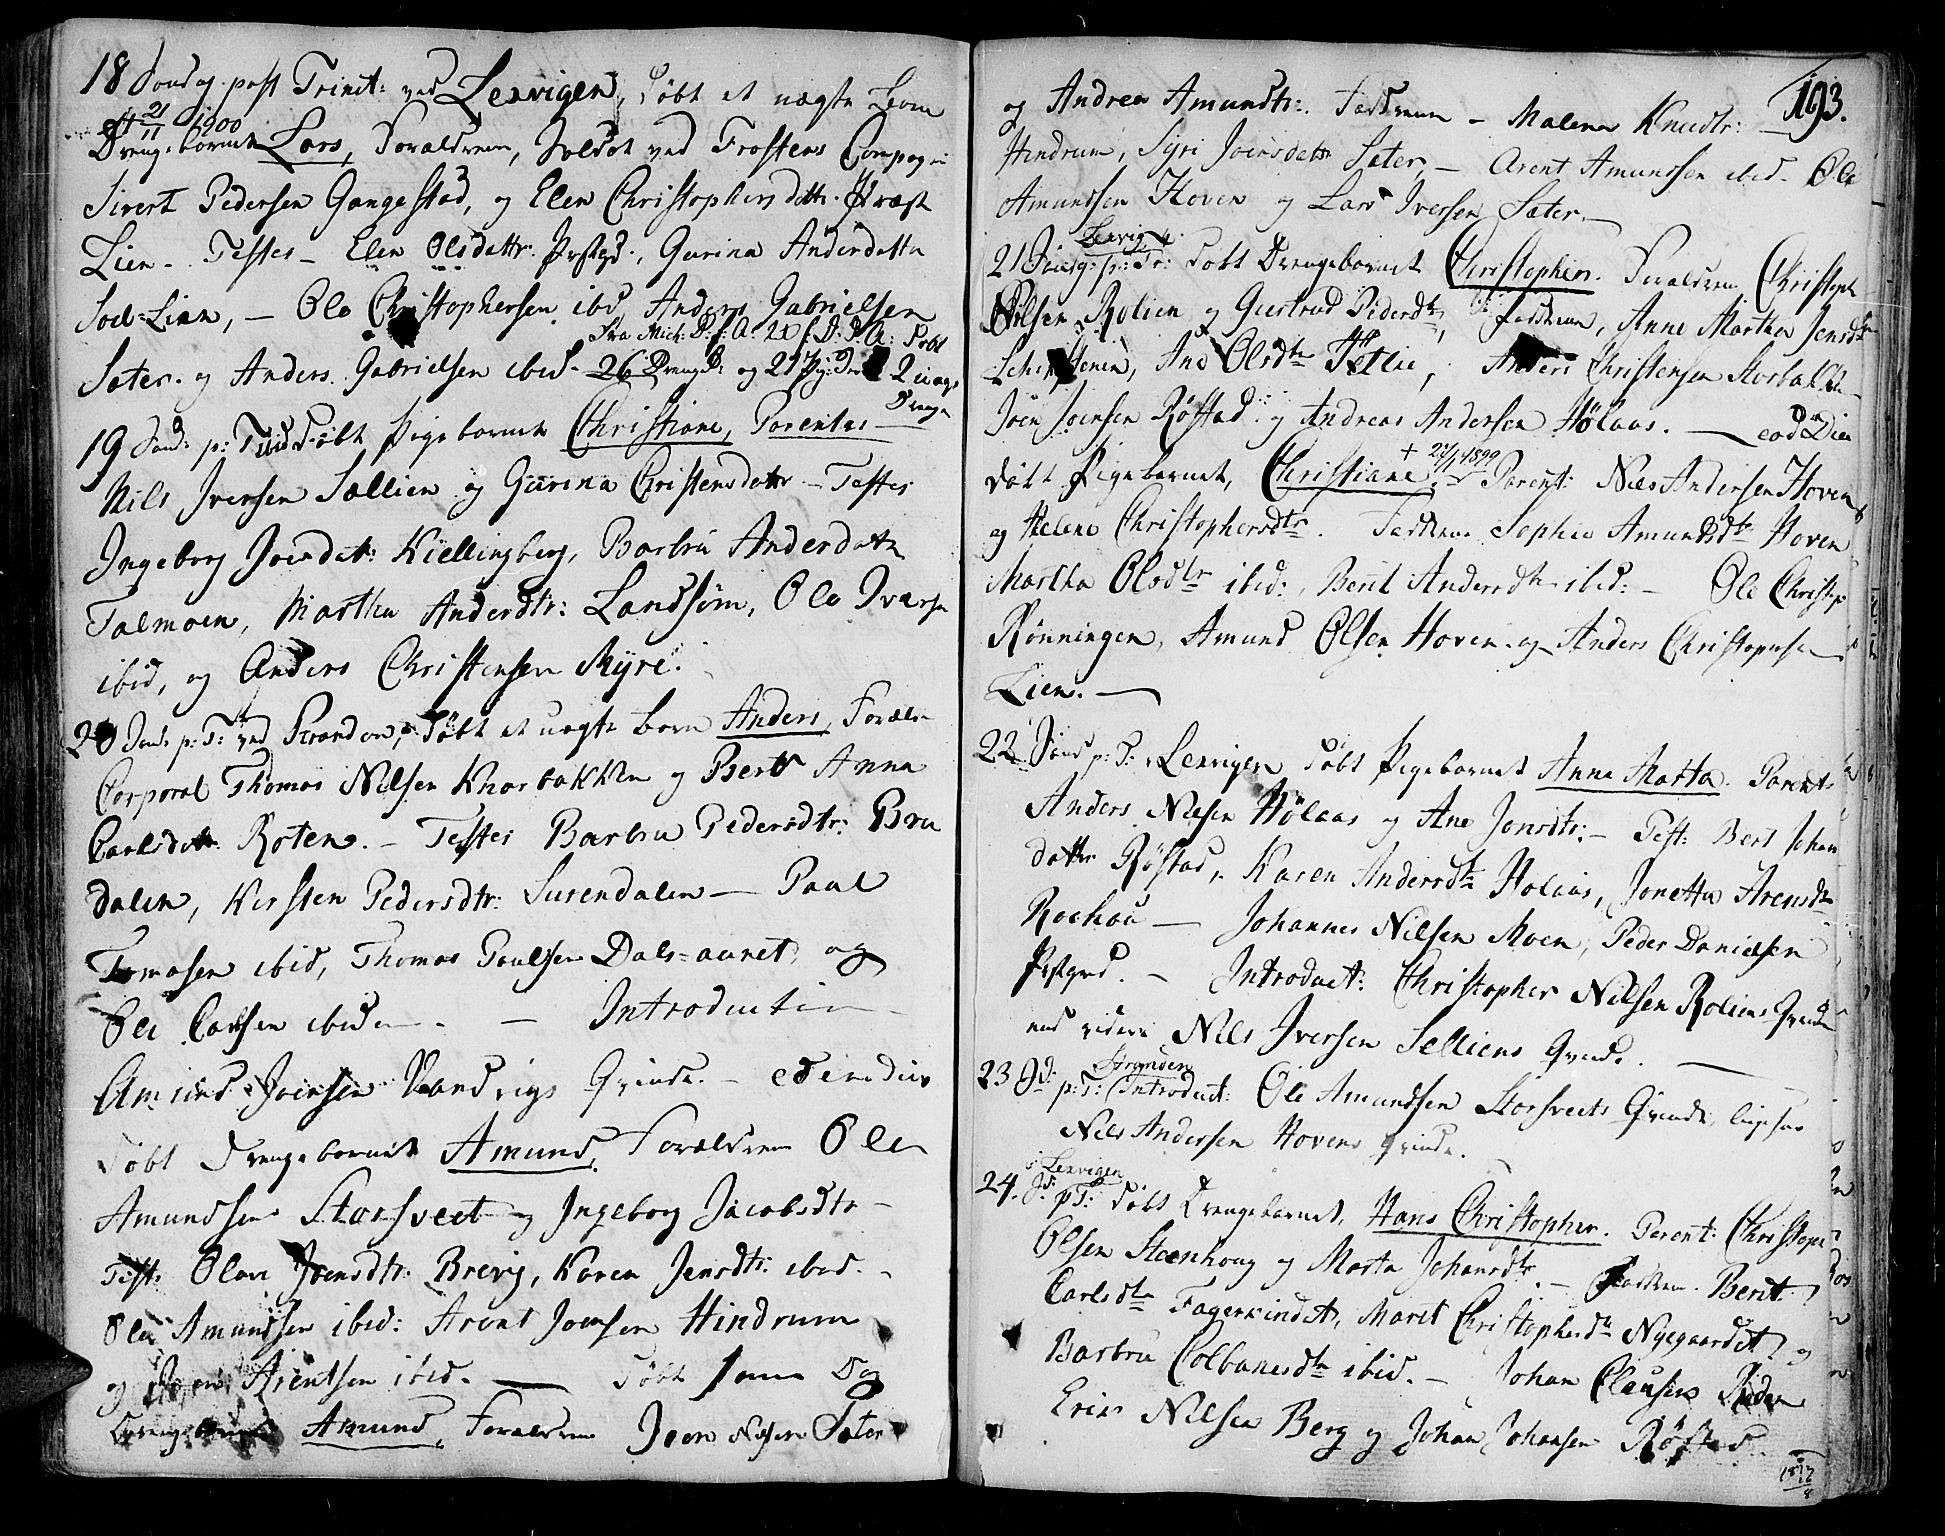 18 Sondag post Trinit: ved Lexvigen, Döbt et uægte
† 21/11 1800
Drengebarnet Lars, Forældrene, Soldat ved Frostens Compagni
Sivert Pedersen Gangestad, og Elen Christophersdattr.
Lien - Testes - Elen Olsdattr. Prstgd., Gurina Andersdatte
Ole Christophersen ibid Anders Gabrielsen
Fra Mich: D: f: A: D: f: A: Döbt
Sæter og Anders Gabrielsen ibid - 26 Drengeb: og 27 2 uægte
Drenge
19 Sond: p: Trin Döbt Pigebarnet Christiane, Parentes
Nils Iversen Sællien og Gurina Christensdattr - Testes
Ingeborg Joersdat: Kiellingberg, Barbru Andersdattr
Talmoen, Martha Andersdtr: Landsøm, Ole Iversen
ibid, og Anders Christensen Myre.
20 Sond: p: T: ved Stranden, Döbt et uægte Barn Anders, Foræld
Corporal Thomas Nilsen Knorbakken og Berit Anna
Carlsdattr Roten. - Testes Barbru Pedersdtr: Bra
dalen, Kirsten Pedersdtr: Surendalen - Paul
Tomasen ibid, Thomas Paulsen Dals-auret, og
Ole Carlsen ibidem. - Introductio
Amund Joensen Vandvigs Qvinde. - eodem die
Döbt Drengebarnet Amund, Forældrene Ole
Amundsen Storsveet og Ingeborg Jacobsdtr -
Test: Olava Joensdtr: Brevig, Karen Jensdtr: ibid. -
Ole Amundsen ibid: Arent Joensen Hindrum
og Arentsen ibid. - Döbt samme Dag
Drengebarnet Amund, Forældrene Joen Nilsen Sæter
193.
og Andrea Amundsdtr:. Faddrene - Malena Knudtr:
Hindrum, Syri Joersdattr Sæter, - Arent Amundsen ibid - Ole
Amundsen Hoven og Lars Iversen Sæter. -
Lexvig
21 Söndg: p: Tr: Döbt Drengebarnet Christopher. Forældrene Christoph
Nilsen Rolien og Giertrud Pedersdtr, Faddrene, Anne Martha Jensdtr
Ane Olsdtr Hetlie, Anders Christensen Storbakken
Joen Joensen Röstad og Andreas Andersen Hölaas. - eodem Die
† 27/1 1899
döbt Pigebarnet, Christiane. - Parent: Niels Andersen Hoven
og Helene Christophersdtr. Faddrene Sophia Amundsdtr Hoven
Martha Olsdtr ibid:, Berit Andersdtr ibid: - Ole Christop
Rönningen, Amund Olsen Hoven og Anders Christophersen
Lien. -
22 Sönd p: T: Lexvigen döbt Pigebarnet Anne Marta. Parent:
Anders Nilsen Hölaas og Ane Jonsdtr: - Test: Berit Johan
dattr Röstad, Karen Andersdtr Holaas, Jonetta Arensdtr
Rochau - Johannes Nilsen Moen, Peder Danielsen
Prstgrd. - Introduct: Christopher Nilsen Roliens Qvinde
end videre Nils Iversen Selliens Qvinde. -
Stranden
23 Sd: p: T: Introduct: Ole Amundsen Storsveets Qvinde, ligesaa
Nils Andersen Hovens qvinde.
i Lexvigen
24. Sd: p T: döbt Drengebarnet, Hans Christopher. Parent: Christoph
Olsen Steenhoug og Marta Johansdtr. - Faddrene. Berit
Carlsdtr Fagervindet, Maret Christophersdtr Nyegaardet, og
Barbru Colbanesdtr ibid. - Johan Clausens
Eric Nilsen Berg og Johan Johansen Röstad.